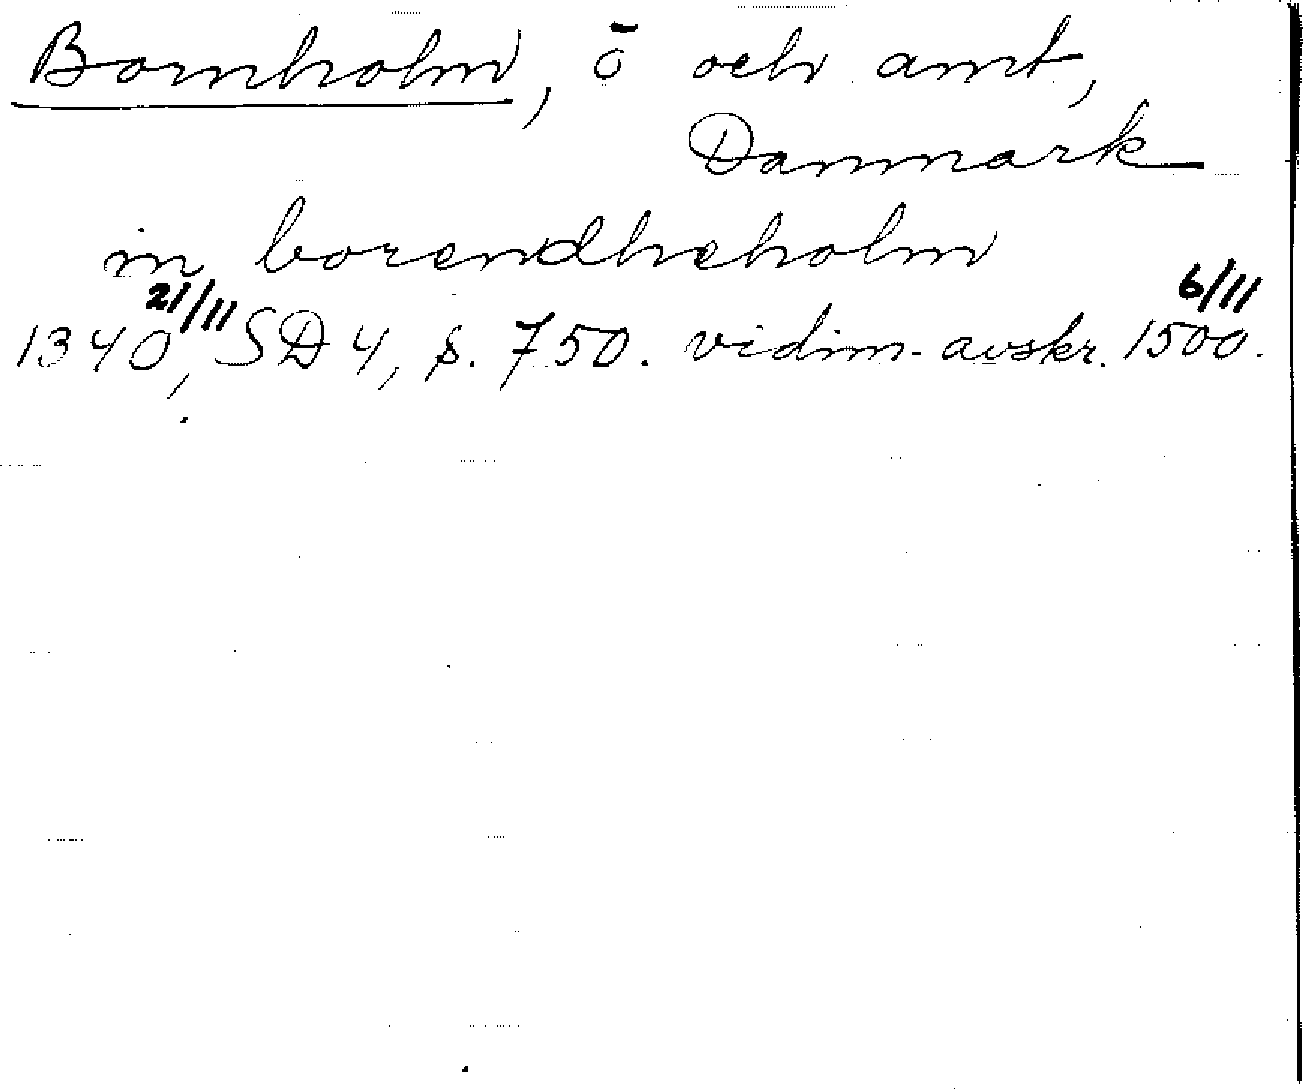 Bornholm, ö och amt,
Danmark
in borendheholm
1340 21/11, SD 4, s. 750. vidim. avskr. 1500 6/11.